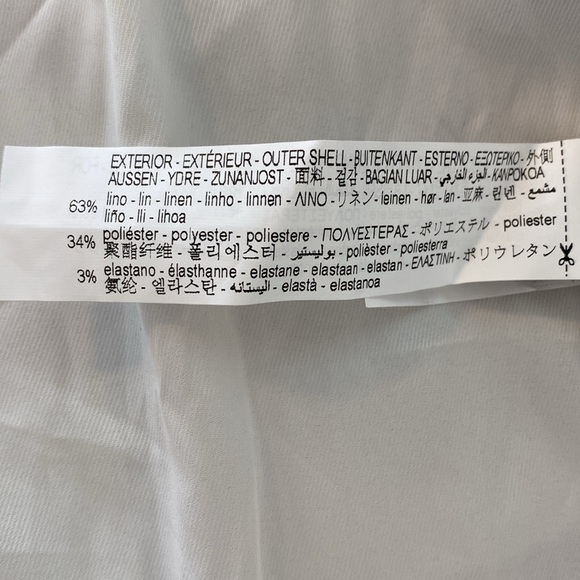 EXTERIOR - EXTÉRIEUR - OUTER SHELL - BUITENKANT - ESTERNO - ΕΞΩΤΕΡΙΚΟ - 外側
AUSSEN - YDRE - ZUNANJOST - 面料 - 겉감 - BAGIAN LUAR - الجزء الخارجي - KANPOKOA
63% lino - lin - linen - linho - linnen - ΛΙΝΟ - リネン - leinen - hør - lan - 亚麻 - 린넨 - مشمع
liño - lli - lihoa
34% poliéster - polyester - poliestere - ΠΟΛΥΕΣΤΕΡΑΣ - ポリエステル - poliester
聚酯纤维 - 폴리에스터 - بوليستير - polièster - poliesterra
3% elastano - élasthanne - elastane - elastaan - elastan - ΕΛΑΣΤΙΝΗ - ポリウレタン
氨纶 - 엘라스탄 - اليستانه - elastà - elastanoa